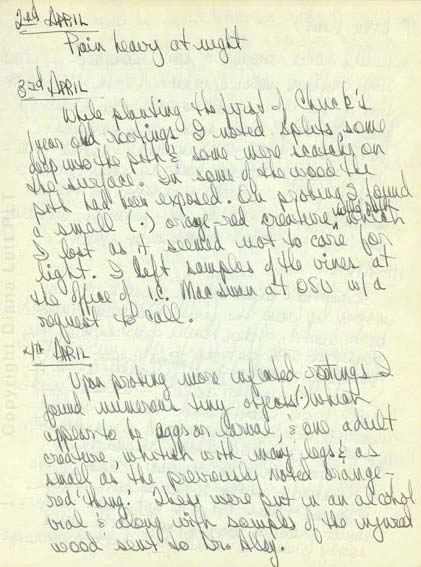 2nd APRIL
Rain heavy at night
3rd APRIL
While planting the first of Chuck's
1 year old rootings I noted splits, some
deep into the pith & some mere scratches on
the surface. In some of the wood the
pith had been exposed. On probing I found
a small (·) orange-red creature, in the pith which
I lost as it seemed not to care for
light. I left samples of the vines at
the office of I.C. MacSwan at OSU w/a
request to call.
4th APRIL
Upon probing more infested rootings I
found numerous tiny objects (·) which
appear to be eggs or larvae, & one adult
creature, whitish with many legs & as
small as the previously noted orange-
red 'thing.' These were put in an alcohol
vial & along with samples of the injured
wood sent to Dr. Alley.
Copyright Diana Lett RET